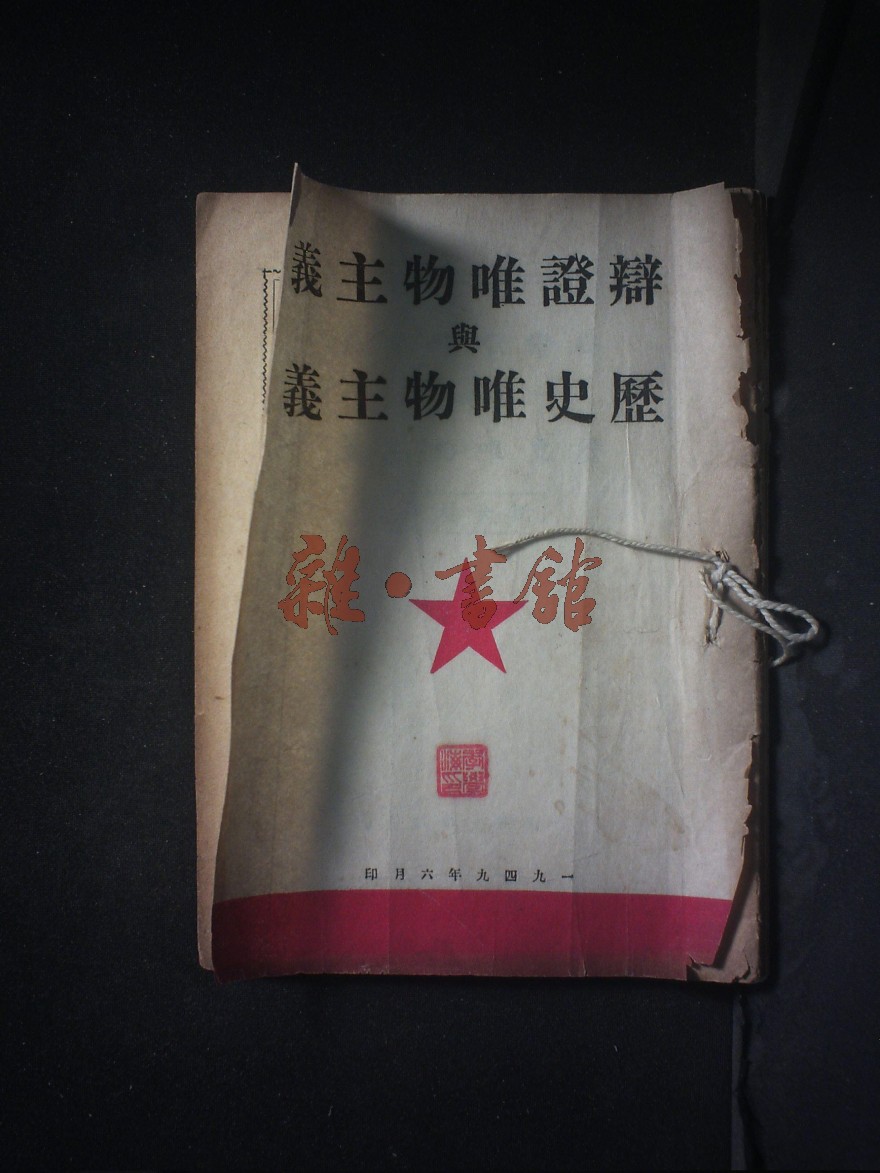 辯證唯物主義
與
歷史唯物主義
雜·書館
一九四九年六月印